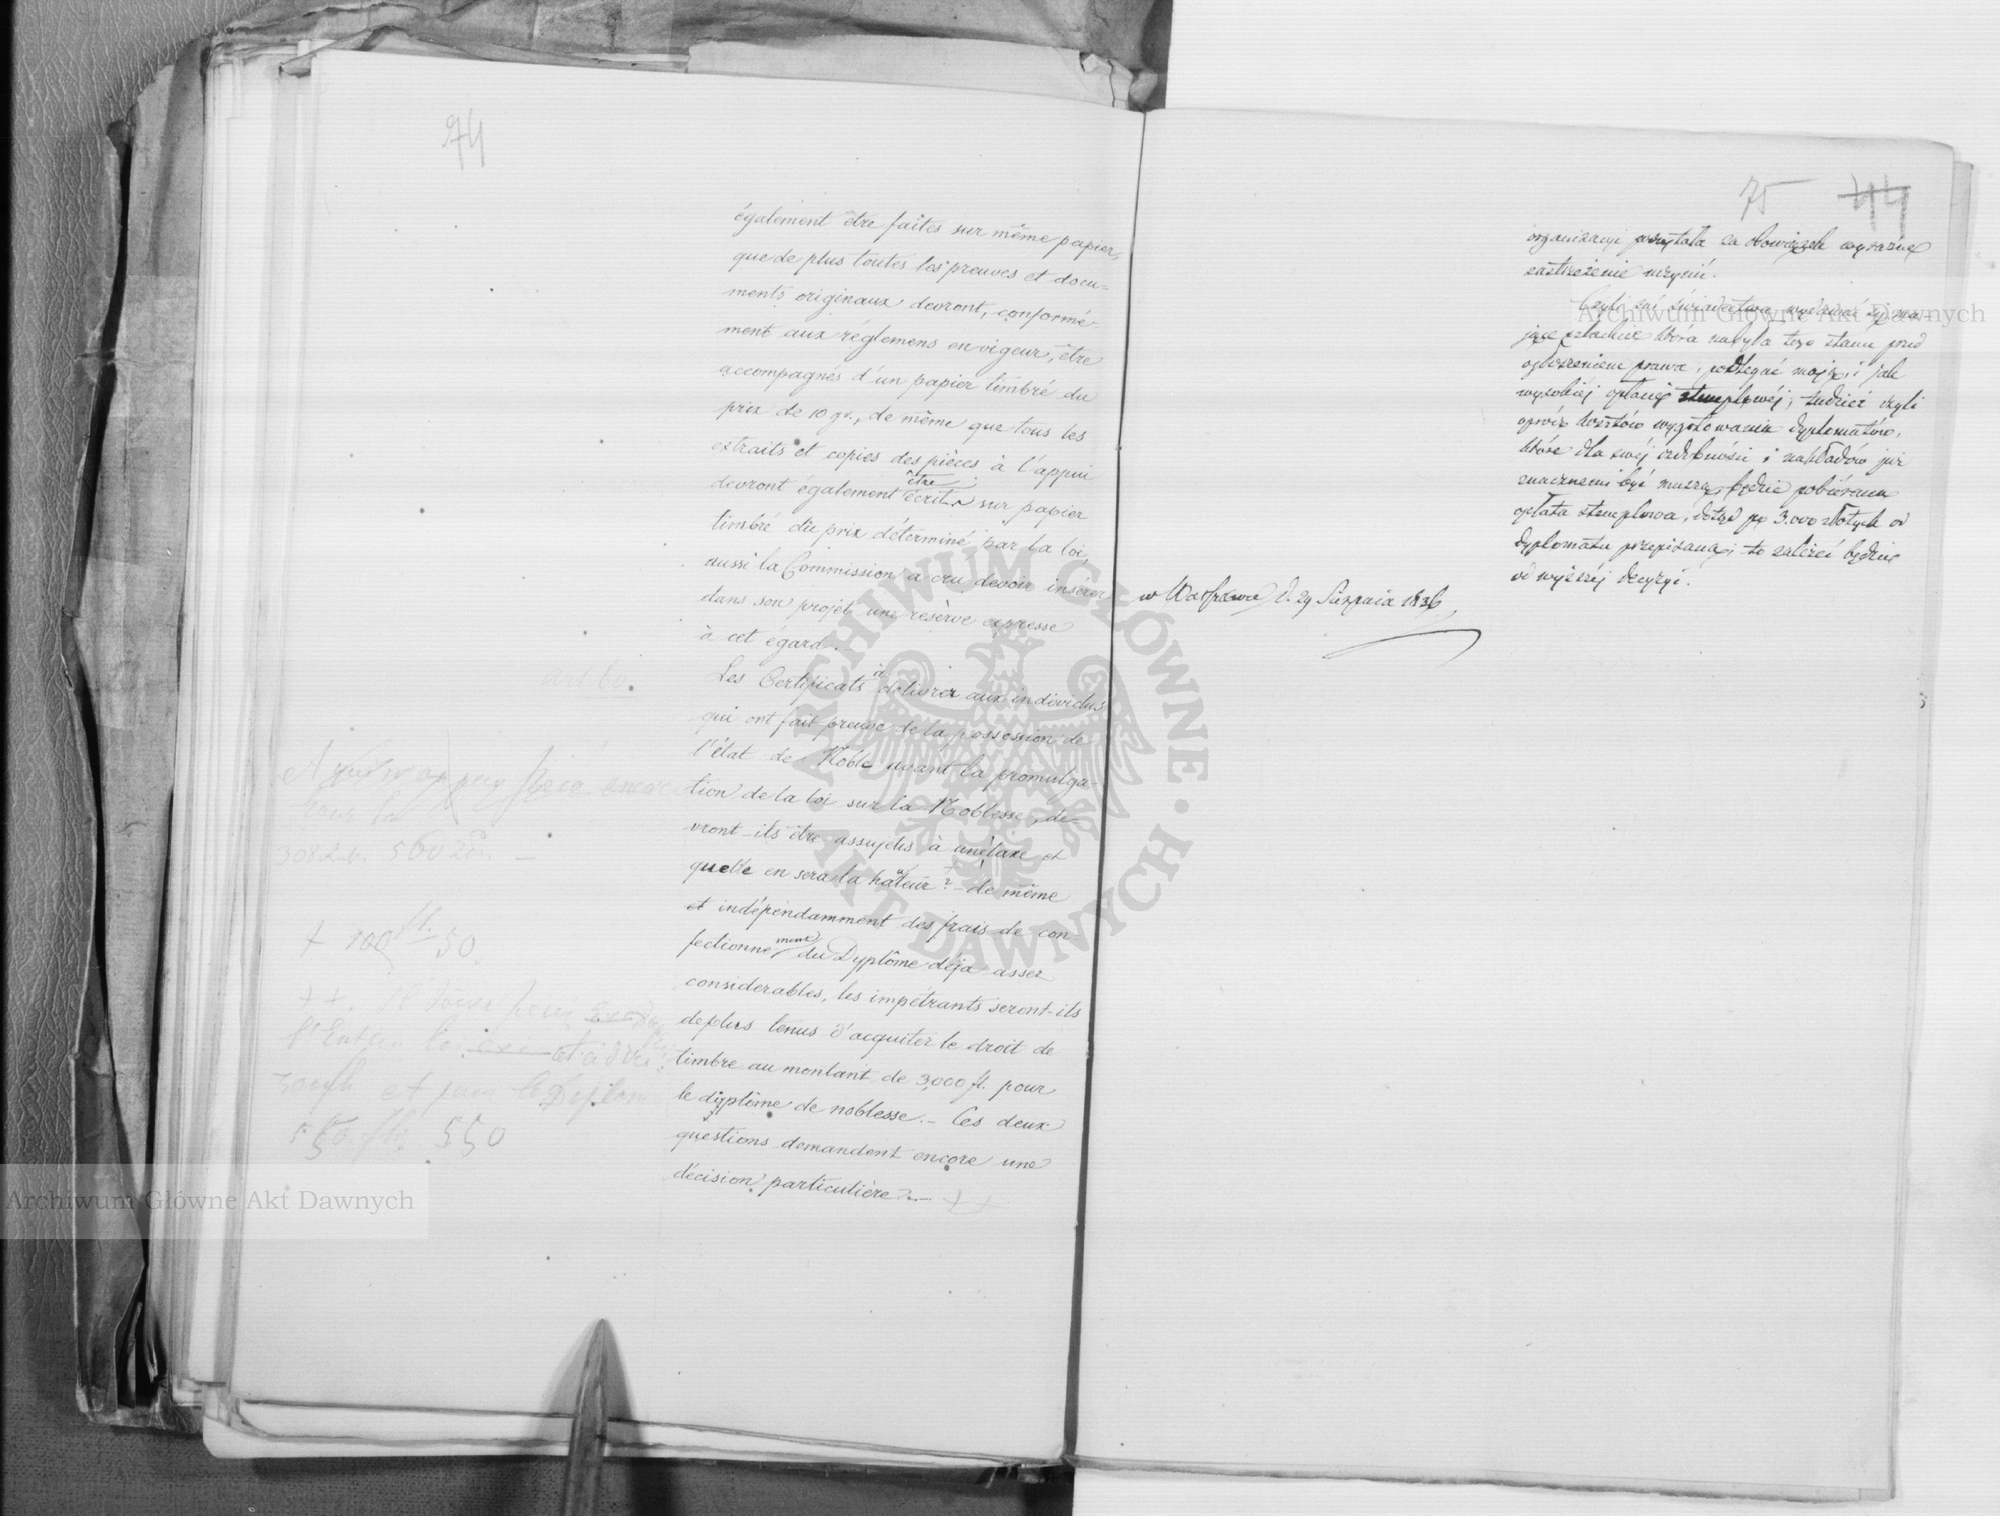 74
également être faites sur même papier,
que de plus toutes les preuves et docu=
ments originaux devront, conformé-
ment aux réglemens en vigeur, être
accompagnés d'un papier timbré du
prix de 10 gr., de même que tous les
extraits et copies des pièces à l'appui
être
devront également écrits sur papier
timbré du prix déterminé par la loi,
aussi la Commission a cru devoir insérer
dans son projet une resèrve expresse
à cet égard.
Les Certificats à delivrer aux individus
qui ont fait preuve de la possession de
l'état de Noble avant la promulga-
tion de la loi sur la Noblesse, de-
vront-ils être assujetis à une taxe et
quelle en sera la hauteur? - de même
et indépendamment des frais de con
fectionnement du Dyplôme déja assez
considerables, les impétrants seront-ils
de plus tenus d'acquiter le droit de
timbre au montant de 3,000 fl. pour
le dyplôme de noblesse. - Ces deux
questions demandent encore une
décision particulière. - ++
encore
pour la
500
+ 100 fl. 50
++.
et pour le
550
75 44
organizacyi poczytała za obowiązek wyraźne
zastrzeżenie uczynić.
Czyli zaś świadectwa, wydawać się ma-
jące szlachcie która nabyła tego stanu przed
ogłoszeniem prawa, podlegać mają i jak
wysokiéj opłacie stemplowéj, tudzież czyli
oprócz kosztów wygotowania dyplomatów,
które dla swéj ozdobności i nakładów już
znacznemi być muszą, będzie pobierana
opłata stemplowa, dotąd po 3.000 złotych od
dyplomatu przepisana; to zależeć będzie
od wyższéj decyzyi.
w Warszawie d. 29 Sierpnia 1836
Archiwum Główne Akt Dawnych
Archiwum Główne Akt Dawnych
ARCHIWUM GŁÓWNE · AKT DAWNYCH ·